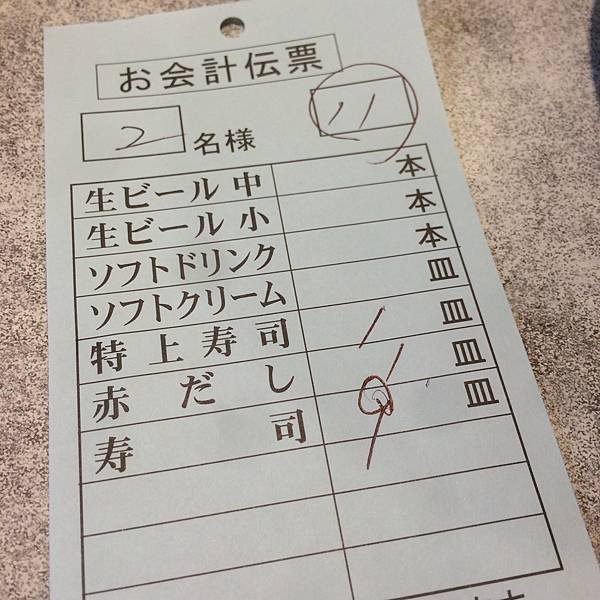 お会計伝票
2 名様 11
生ビール 中 本
生ビール 小 本
ソフトドリンク 本
ソフトクリーム 皿
特上寿司 1 皿
赤だし 1 皿
寿司 9 皿